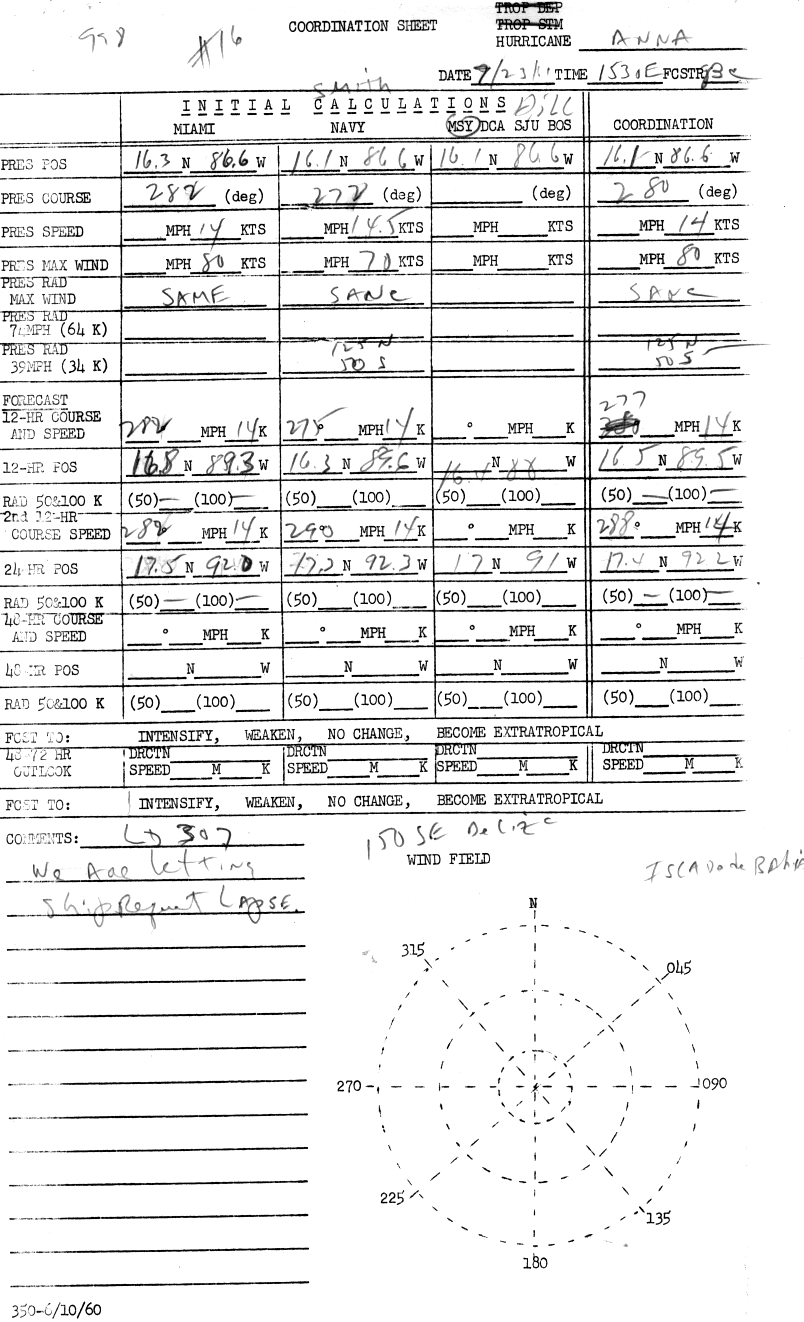 998 #16 COORDINATION SHEET TROP DEP
TROP STM
HURRICANE ANNA
DATE 7/23/61 TIME 1530E FCSTR
Smith
INITIAL CALCULATIONS Dill
MIAMI NAVY MSY DCA SJU BOS COORDINATION
PRES POS 16.3 N 86.6 W 16.1 N 86.6 W 16.1 N 86.6 W 16.1 N 86.6 W
PRES COURSE 282 (deg) 272 (deg) (deg) 280 (deg)
PRES SPEED MPH 14 KTS MPH 14.5 KTS MPH KTS MPH 14 KTS
PRES MAX WIND MPH 80 KTS MPH 70 KTS MPH KTS MPH 80 KTS
PRES RAD
MAX WIND SAME SAME SAME
PRES RAD
74MPH (64 K)
PRES RAD 125 N 125 N
39MPH (34 K) 50 S 50 S
FORECAST 277
12-HR COURSE
AND SPEED 282 MPH 14 K 275° MPH 14 K ° MPH K 280 MPH 14 K
12-HR POS 16.8 N 89.3 W 16.3 N 89.6 W 16.4 N 88 W 16.5 N 89.5 W
RAD 50&100 K (50) — (100) — (50) (100) (50) (100) (50) — (100) —
2nd 12-HR
COURSE SPEED 282° MPH 14 K 290 MPH 14 K ° MPH K 288° MPH 14 K
24-HR POS 17.5 N 92.0 W 17.2 N 92.3 W 17 N 91 W 17.4 N 92.2 W
RAD 50&100 K (50) — (100) — (50) (100) (50) (100) (50) — (100) —
48-HR COURSE
AND SPEED ° MPH K ° MPH K ° MPH K ° MPH K
48-HR POS N W N W N W N W
RAD 50&100 K (50) (100) (50) (100) (50) (100) (50) (100)
FCST TO: INTENSIFY, WEAKEN, NO CHANGE, BECOME EXTRATROPICAL
48-72 HR DRCTN DRCTN DRCTN DRCTN
OUTLOOK SPEED M K SPEED M K SPEED M K SPEED M K
FCST TO: INTENSIFY, WEAKEN, NO CHANGE, BECOME EXTRATROPICAL
COMMENTS: 307 150 SE Belize
We Are letting WIND FIELD
Ship Request LAPSE.
N
315 045
270 090
225 135
180
350-6/10/60